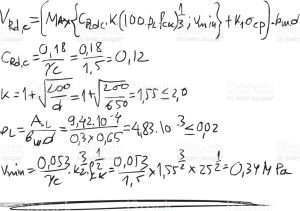 V_Rd,c = [MAX{C_Rd,c · K(100 ρ_L f_ck)^1/3; v_min} + k_1 σ_cp] · b_w d
C_Rd,c = 0,18/γ_c = 0,18/1,5 = 0,12
K = 1+√200/d = 1+√200/650 = 1,55 ≤ 2,0
ρ_L = A_sL/b_w d = 9,42·10^-4/0,3×0,65 = 4,83·10^-3 ≤ 0,02
v_min = 0,053/γ_c · k^3/2 f_ck^1/2 = 0,053/1,5 × 1,55^3/2 × 25^1/2 = 0,34 MPa